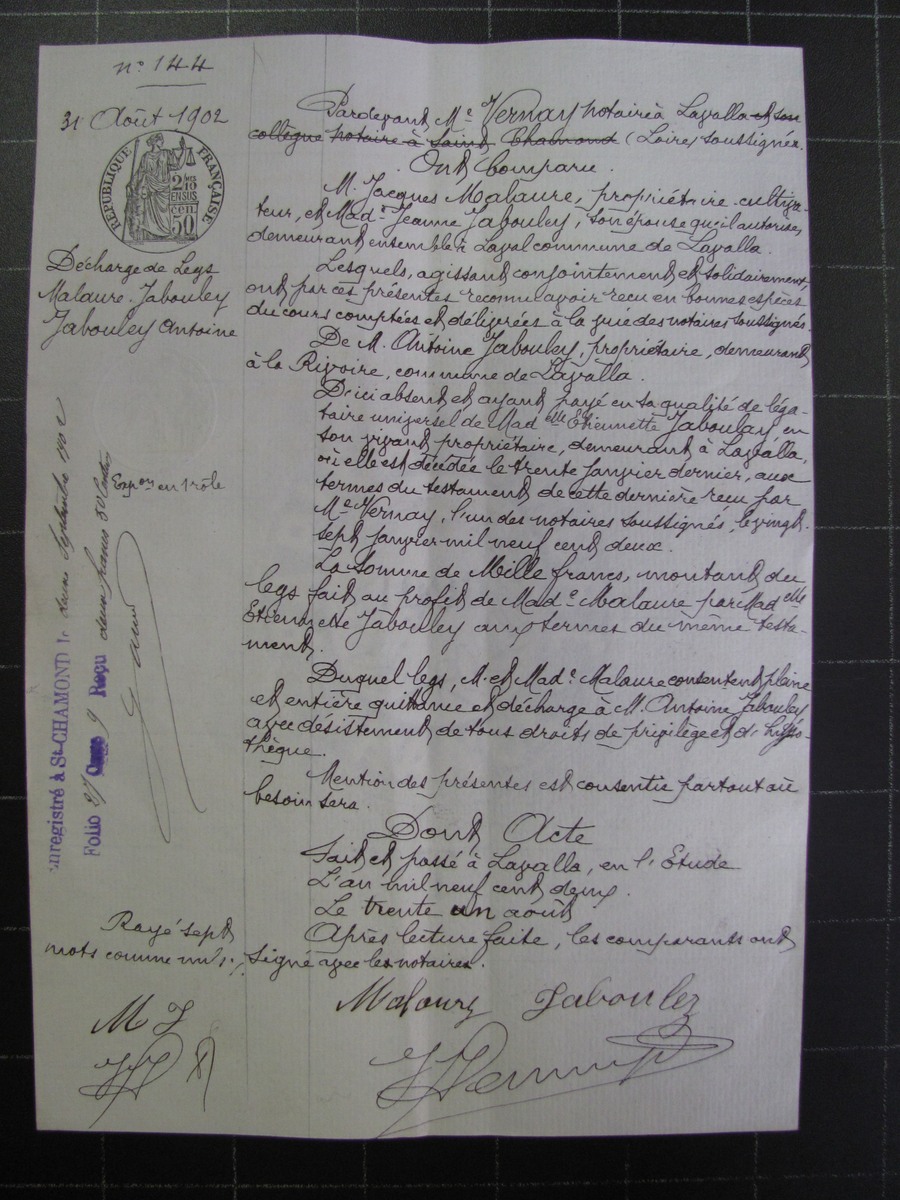 n° 144
31 Août 1902
RÉPUBLIQUE FRANÇAISE
2/10
EN SUS
50 cen
Décharge de Legs
Malaure-Jabouley
Jabouley Antoine
Expon en 1 rôle
Enregistré à St-CHAMOND le deux septembre 1902
Folio Reçu deux francs 50 centimes
Pardevant Me Vernay notaire à Lavalla et son
collègue notaire à Saint Chamond (Loire) soussignés.
Ont Comparu.
M. Jacques Malaure, propriétaire-cultiva-
teur, et Made Jeanne Jabouley, son épouse qu'il autorise,
demeurant ensemble à Laval commune de Lavalla.
Lesquels, agissant conjointement et solidairement,
ont par ces présentes reconnu avoir reçu en bonnes espèces
du cours comptées et délivrées à la vue des notaires soussignés.
De M. Antoine Jabouley, propriétaire, demeurant
à la Rivoire, commune de Lavalla.
D'ici absent et ayant payé en sa qualité de léga-
taire universel de Madelle Etiennette Jabouley, en
son vivant propriétaire, demeurant à Lavalla,
où elle est décédée le trente janvier dernier, aux
termes du testament de cette dernière reçu par
Me Vernay, l'un des notaires soussignés, le vingt-
sept janvier mil neuf cent deux.
La Somme de Mille francs, montant du
legs fait au profit de Made Malaure par Madelle
Etiennette Jabouley aux termes du même testa-
ment.
Duquel legs, M. et Made Malaure consentent pleine
et entière quittance et décharge à M. Antoine Jabouley
avec désistement de tous droits de privilège et d'hypo-
thèque.
Mention des présentes est consentie partout où
besoin sera.
Dont Acte
Fait et passé à Lavalla, en l'Etude
L'an mil neuf cent deux.
Le trente un août
Après lecture faite, les comparants ont
signé avec les notaires.
Rayé sept
mots comme nuls.
M J
Malaure Jabouley
Vernay